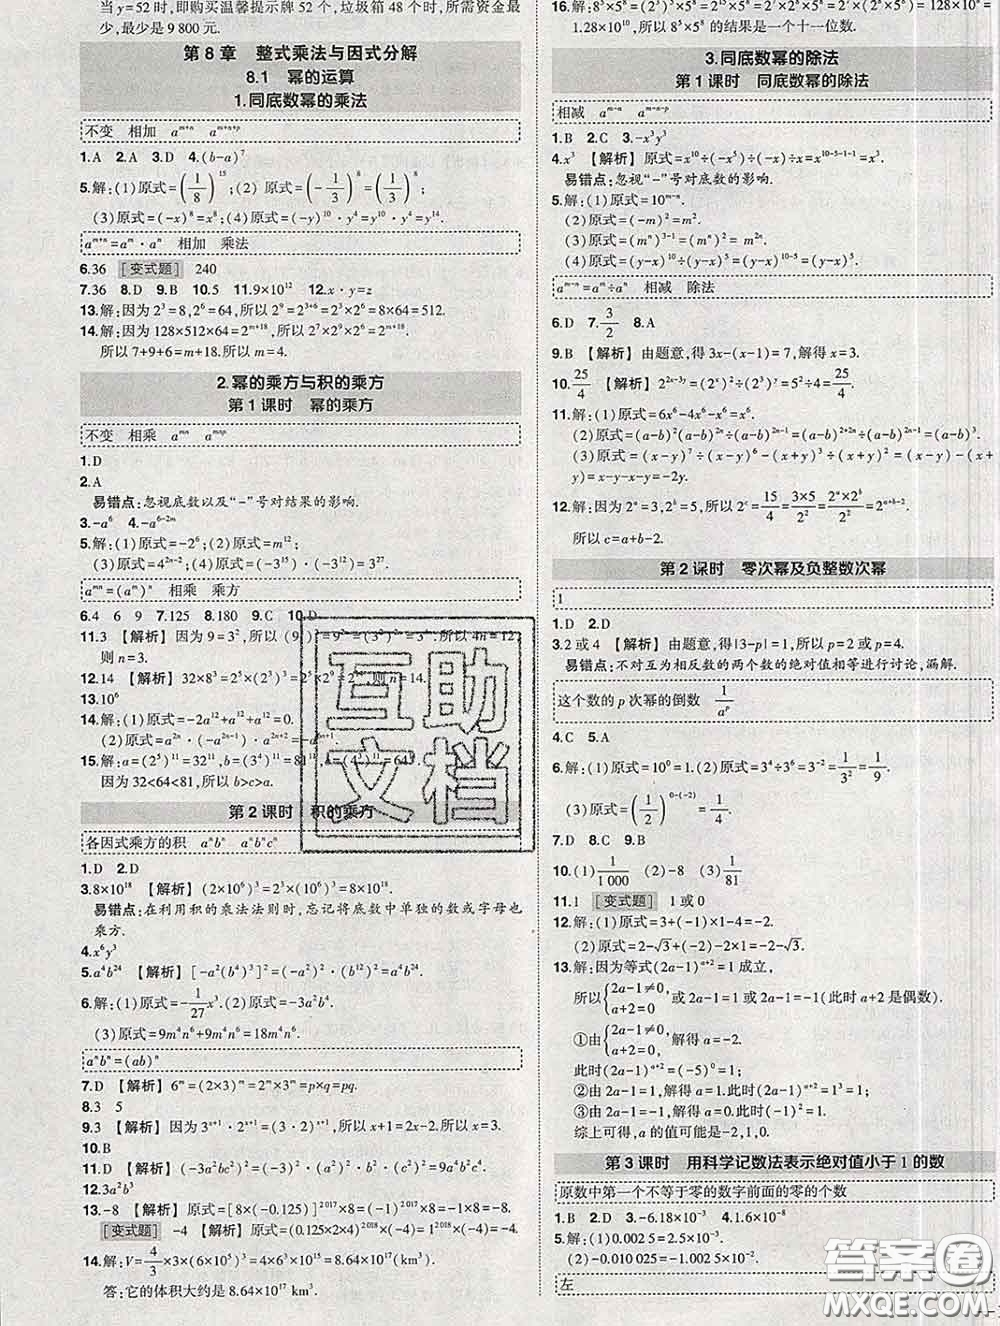 当y=52时,即购买温馨提示牌52个,垃圾箱48个时,所需资金最
少,最少是9 800元.
第8章 整式乘法与因式分解
8.1 幂的运算
1.同底数幂的乘法
不变 相加 a^{m+n} a^{m+n+p}
1.A 2.A 3.D 4.(b-a)^7
5.解:(1)原式=(1/8)^{15};(2) 原式=(-1/3)^8=(1/3)^8;
(3)原式=(-x)^8=x^8;(4)原式=(-y)^{10}·y^4=y^{10}·y^4=y^{14}.
a^{m+n}=a^m·a^n 相加 乘法
6.36 [变式题] 240
7.36 8.D 9.B 10.5 11.9×10^{12} 12.x·y=z
13.解:因为2^3=8,2^6=64,所以2^9=2^{3+6}=2^3×2^6=8×64=512.
14.解:因为128×512×64=2^{m+18},所以2^7×2^9×2^6=2^{m+18}.
所以7+9+6=m+18.所以m=4.
2.幂的乘方与积的乘方
第1课时 幂的乘方
不变 相乘 a^{mn} a^{mnp}
1.D
2.A
易错点:忽视底数以及"-"号对结果的影响.
3.-a^6 4.-a^{6-2m}
5.解:(1)原式=-2^6;(2)原式=m^{12};
(3)原式=4^{2n-2};(4)原式=-(3^{12})=-3^{12}.
a^{mn}=(a^m)^n 相乘 乘方
6.4 6 9 7.125 8.180 9.C 10.D
11.3 【解析】因为9=3^2,所以(9^n)^2=9^{2n}=(3^2)^{2n}=3^{4n}.所以4n=12,
则n=3.
12.14 【解析】32×8^3=2^5×(2^3)^3=2^5×2^9=2^{14}=2^n,n=14.
13.10^6
14.解:(1)原式=-2a^{12}+a^{12}+a^{12}=0.
(2)原式=a^{2n}·(-a^{2n-1})·a^{2n+2}=-a^{6n+1}.
15.解:a=(2^5)^{11}=32^{11},b=(3^4)^{11}=81^{11},c=(4^3)^{11}=64^{11}.
因为32<64<81,所以b>c>a.
第2课时 积的乘方
各因式乘方的积 a^nb^n a^nb^nc^n
1.D 2.D
3.8×10^{18} 【解析】(2×10^6)^3=2^3×(10^6)^3=8×10^{18}.
易错点:在利用积的乘法法则时,忘记将底数中单独的数或字母也
乘方.
4.x^6y^3
5.a^4b^{24} 【解析】[-a^2(b^4)^3]^2=(-a^2)^2·(b^{12})^2=a^4b^{24}.
6.解:(1)原式=-1/27x^3.(2)原式=4a^6b^2-a^6b^2=3a^6b^2.
(3)原式=9m^4n^6+9m^4n^6=18m^4n^6.
a^nb^n=(ab)^n
7.D 【解析】6^m=(2×3)^m=2^m×3^m=p×q=pq.
8.3 5
9.3 【解析】因为3^{x+1}·2^{x+1}=(3×2)^{x+1}=6^{2x-2},所以x+1=2x-2.所以x=3.
10.B
11.D 【解析】(-3a^2bc^4)^3=(-3)^3(a^2)^3b^3(c^4)^3=-27a^6b^3c^{12}.
12.3a^2b^3
13.-8 【解析】原式=[8×(-0.125)]^{2017}×8=(-1)^{2017}×8=-1×8=-8.
[变式题] -4 【解析】原式=(0.125×2×4)^{2018}×(-4)=1^{2018}×(-4)=-4.
14.解:V=4/3×3×(6×10^5)^3=4×6^3×10^{15}=8.64×10^{17}(km^3).
答:它的体积大约是8.64×10^{17} km^3.
16.解:8^5×5^8=
1.28×10^{10},所以8^5×5^8的结果是一个十一位数.
3.同底数幂的除法
第1课时 同底数幂的除法
相减 a^{m-n} a^{m-n-p}
1.B 2.C 3.-x^3y^3
4.x^3 【解析】原式=x^{10}÷(-x^5)÷(-x)÷x=x^{10-5-1-1}=x^3.
易错点:忽视"-"号对底数的影响.
5.解:(1)原式=10^{m-n}.
(2)原式=(-m)^2=m^2.
(3)原式=(m^n)^{3-1}=(m^n)^2=m^{2n}.
(4)原式=(y-x)^{10}÷(y-x)^5=(y-x)^{10-5}=(y-x)^5.
a^{m-n}=a^m÷a^n 相减 除法
6.D 7.3/2 8.A
9.B 【解析】由题意,得3x-(x-1)=7,解得x=3.
10.25/4 【解析】2^{2x-3y}=(2^x)^2÷(2^3)^y=5^2÷4=25/4.
11.解:(1)原式=6x^6-4x^6-x^6=x^6.
(2)原式=(a-b)^2(a-b)^{2n}÷(a-b)^{2n-1}=(a-b)^{2+2n}÷(a-b)^{2n-1}=(a-b)^3.
(3)原式=(x-y)^7÷(x-y)^6-(x+y)^3÷(x+y)^2=(x-y)-(x+
y)=x-y-x-y=-2y.
12.解:因为2^a=3,2^b=5,所以2^c=15/4=3×5/2^2=2^a×2^b/2^2=2^{a+b-2}.
所以c=a+b-2.
第2课时 零次幂及负整数次幂
1
1.D 2.D
3.2或4 【解析】由题意,得|3-p|=1,所以p=2或p=4.
易错点:不对互为相反数的两个数的绝对值相等进行讨论,漏解.
这个数的p次幂的倒数 1/a^p
4.C 5.A
6.解:(1)原式=10^0=1.(2)原式=3^4÷3^6=3^{-2}=1/3^2=1/9.
(3)原式=(1/2)^{0-(-2)}=(1/2)^2=1/4.
7.D 8.C 9.B
10.(1)1/1 000 (2)-8 (3)1/81
11.1 [变式题] 1或0
12.解:(1)原式=3+(-1)×1-4=-2.
(2)原式=2-√3+(-2)×1-2=-2-√3.
13.解:因为等式(2a-1)^{a+2}=1成立,
所以{2a-1≠0,a+2=0或2a-1=1或2a-1=-1(此时a+2是偶数).
①由{2a-1≠0,a+2=0,解得a=-2.
此时(2a-1)^{a+2}=(-5)^0=1;
②由2a-1=1,解得a=1.此时(2a-1)^{a+2}=1^3=1;
③由2a-1=-1,解得a=0.此时(2a-1)^{a+2}=(-1)^2=1.
综上可得,a的值可能是-2,1,0.
第3课时 用科学记数法表示绝对值小于1的数
原数中第一个不等于零的数字前面的零的个数
1.B 2.D 3.-6.18×10^{-3} 4.1.6×10^{-8}
5.解:(1)0.002 5=2.5×10^{-3}.
(2)-0.010 025=-1.002 5×10^{-2}.
左
互助
文档
答案圈
MXQE.COM